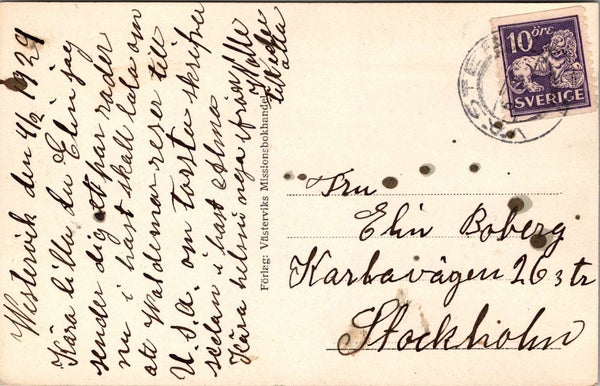 Westervik den 4/2 1929
Kära lilla du Elin jag
sender dig ett par rader
nu i hast skall tala om
att Waldemar reser till
U.S.A. om torsta skrifver
sedan i hast Alma
Kära helsninga ifrån Kalle
10 ÖRE
SVERIGE
Förleg: Västerviks Missionsbokhandel
Fru
Elin Boberg
Karlavägen 26 3 tr
Stockholm